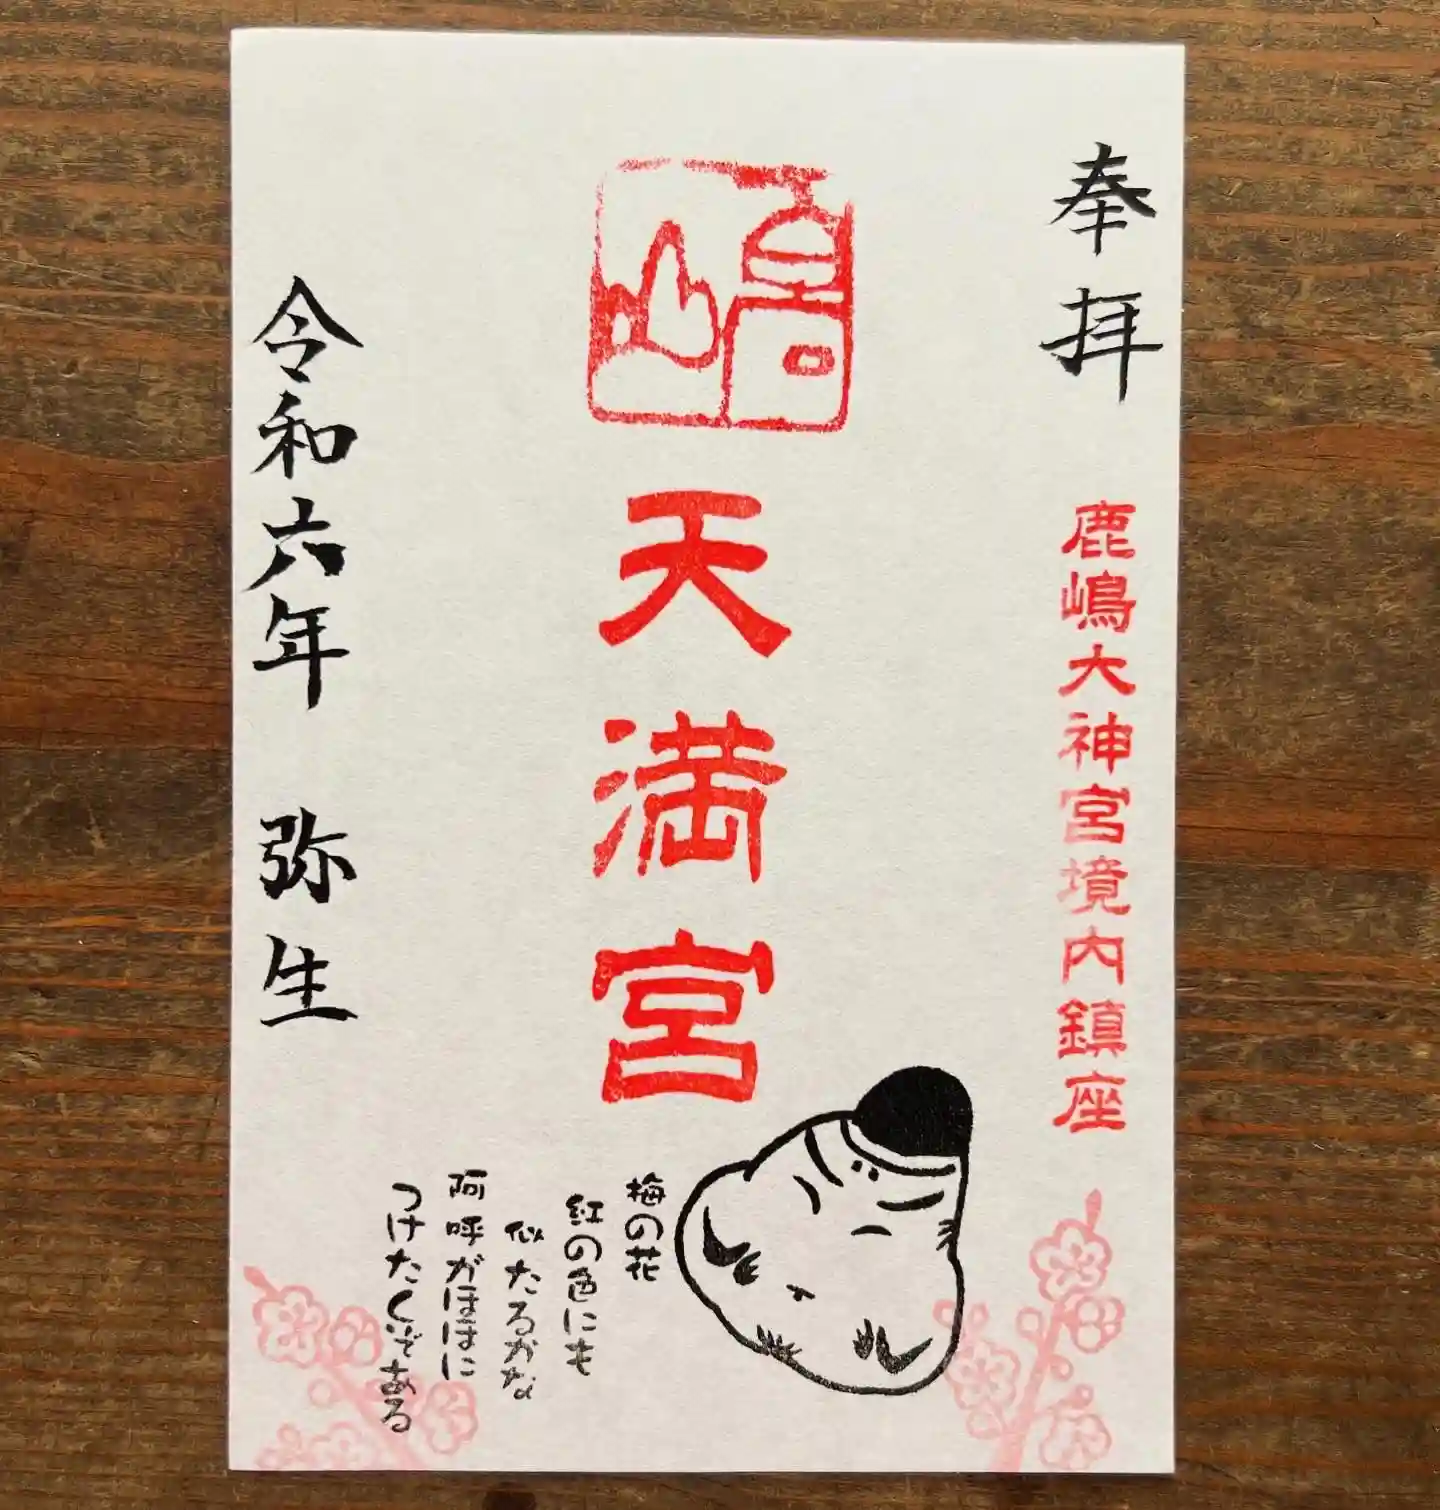 奉拝
鹿嶋大神宮境内鎮座
天満宮
梅の花
紅の色にも
似たるかな
阿呼がほほに
つけたくぞある
令和六年 弥生